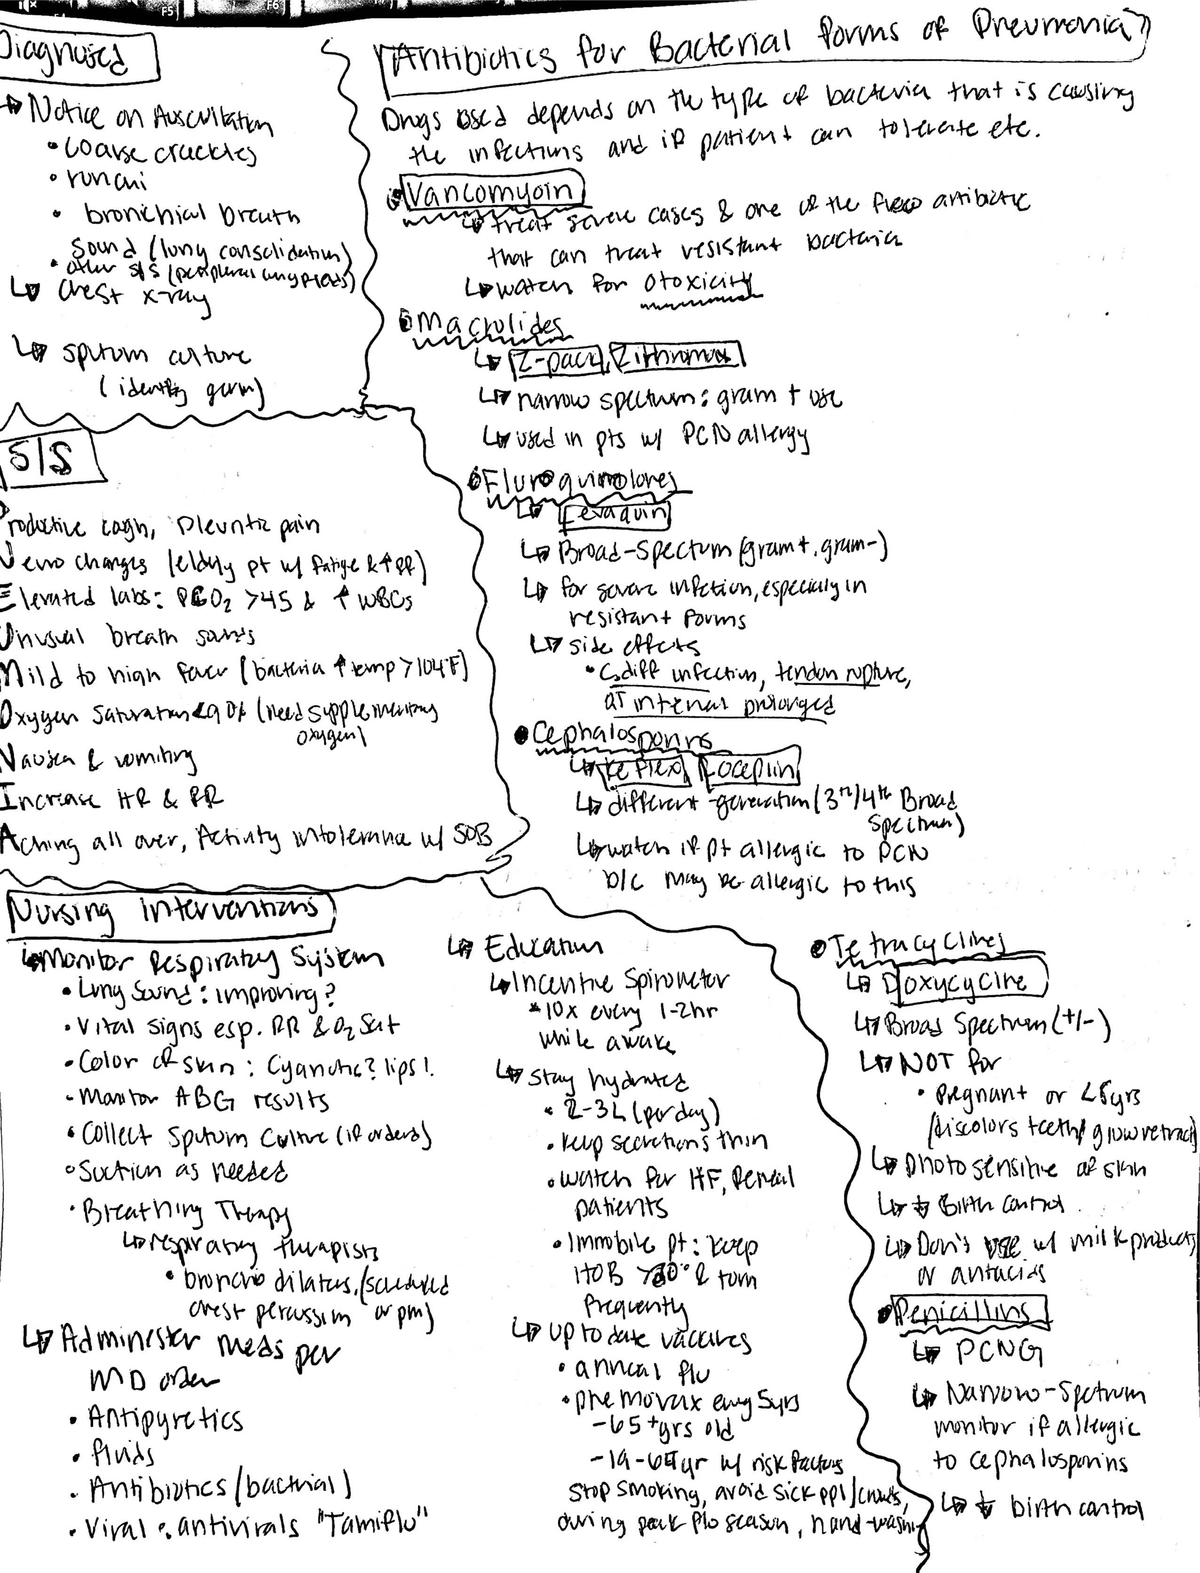 F5
F6
Diagnosed
Notice on Auscultation
• coarse crackles
• ronchi
• bronchial breath
sound (lung consolidation)
• other s/s (peripheral lung fields)
Chest x-ray
sputum culture
(identify germ)
S/S
Productive cough, Pleuritic pain
Neuro changes (eldly pt w/ fatige & ↑RR)
Elevated labs: PCO2 >45 & ↑ WBCs
Unusual breath sounds
Mild to high fever (bacteria ↑ temp > 104°F)
Oxygen Saturation <90% (need supplementary
oxygen)
Nausea & vomiting
Increase HR & RR
Aching all over, Activity intolerance w/ SOB
Antibiotics for Bacterial forms of Pneumonia
Drugs used depends on the type of bacteria that is causing
the infections and if patient can tolerate etc.
• Vancomyoin
treat severe cases & one of the few antibiotic
that can treat resistant bacteria
watch for otoxicity
• Macrolides
Z-pack, Zithromax
narrow spectrum: gram + use
used in pts w/ PCN allergy
• Fluroquinolones
Levaquin
Broad-Spectum (gram+, gram-)
for severe infection, especially in
resistant forms
side effects
• C.diff infection, tendon rupture,
QT interval prolonged
• Cephalosporins
Keflex, Rocephin
different generation (3rd/4th Broad
Spectrum)
watch if pt allergic to PCN
b/c may be allergic to this
Nursing interventions
Monitor Respiratory System
• Lung Sound: improving?
• Vital signs esp. RR & O2 Sat
• Color of skin: Cyanotic? lips!
• Monitor ABG results
• Collect Sputum Culture (if orders)
• Suction as needed
• Breathing Therapy
respiratory therapists
• broncho dilators, (scheduled
chest percussion or prn)
Administer meds per
MD order
• Antipyretics
• fluids
• Antibiotics (bactrial)
• Viral: antivirals "Tamiflu"
Education
Incentive Spirometer
*10x every 1-2hr
while awake
stay hydrated
• 2-3L (per day)
• keep secretions thin
• watch for HF, Renal
patients
• Immobile pt: keep
HOB >30° & turn
frequently
up to date vaccines
• annual flu
• pnemovax every 5yrs
-65+yrs old
-19-64yr w/ risk factors
stop smoking, avoid sick ppl/crowds,
during peak flu season, hand-washing
• Tetracyclines
Doxycycline
Broad Spectrum (+/-)
NOT for
• pregnant or <8yrs
(discolors teeth/ grow retract)
photosensitive of skin
↓ Birth control
Don't use w/ milk products
or antacids
• Penicillins
PCNG
Narrow-Spectrum
monitor if allergic
to cephalosporins
↓ birth control